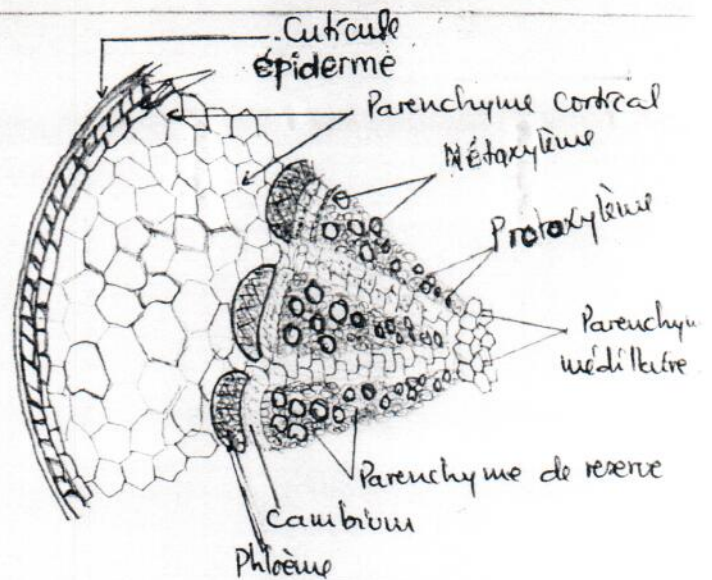 Cuticule
épiderme
Parenchyme cortical
Métaxylème
Protoxylème
Parenchym
médillaire
Parenchyme de reserve
Cambium
Phloème